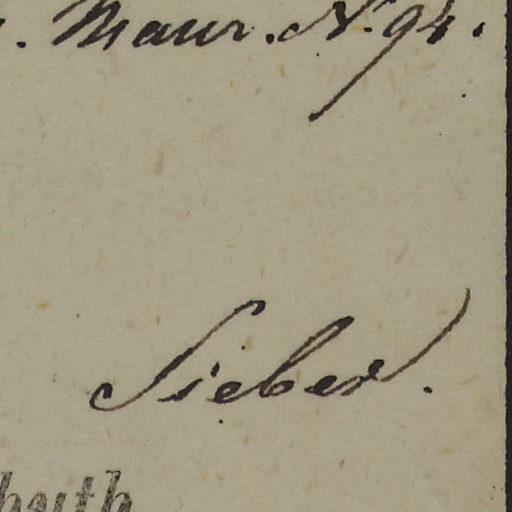 . Maur. N. 94.
Sieber.
buth